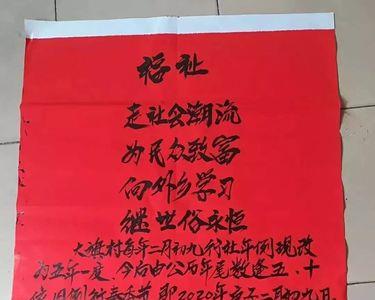 福祉
走社会潮流
为民众致富
向外乡学习
继世俗永恒
大旗村每年二月初九行社年例现改
为五年一度，今后由公历年尾数逢五、十
即2020年
月初九